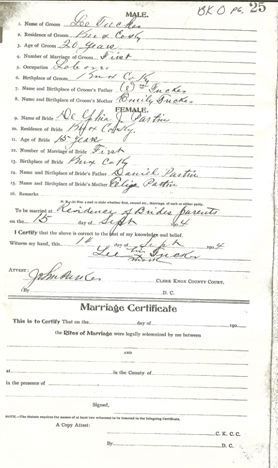 BK O PG. 25
MALE.
1. Name of Groom Lee Tucker
2. Residence of Groom Knox Conty
3. Age of Groom 20 years
4. Number of Marriage of Groom First
5. Occupation Laborer
6. Birthplace of Groom Knox Coty
7. Birthplace of Groom's Father Tucker
8. Birthplace of Groom's Mother Emily Tucker
FEMALE.
9. Name of Bride J. Partin
10. Residence of Bride Knox County.
11. Age of Bride 15 years
12. Number of Marriage of Bride First
13. Birthplace of Bride Knox Coty
14. Name and Birthplace of Bride's Father Daniel Partin
15. Name and Birthplace of Bride's Mother Partin
16. Remarks
To be married at Residency of Brides parents
on the 15 day of Sept 4
I Certify that the above is correct to the best of my knowledge and belief.
Witness my hand, this 14 day of Sept 190 4
Lee his mark Tucker
ATTEST:
CLERK KNOX COUNTY COURT.
(By D. C.
Marriage Certificate
This is to Certify That on the day of 190
the Rites of Marriage were legally solemnized by me between
AND
at in the County of
in the presence of
Signed
NOTE.—The statute requires the names of at least two witnesses to be inserted in the foregoing Certificate.
C. K. C. C.
A Copy Attest:
By D. C.